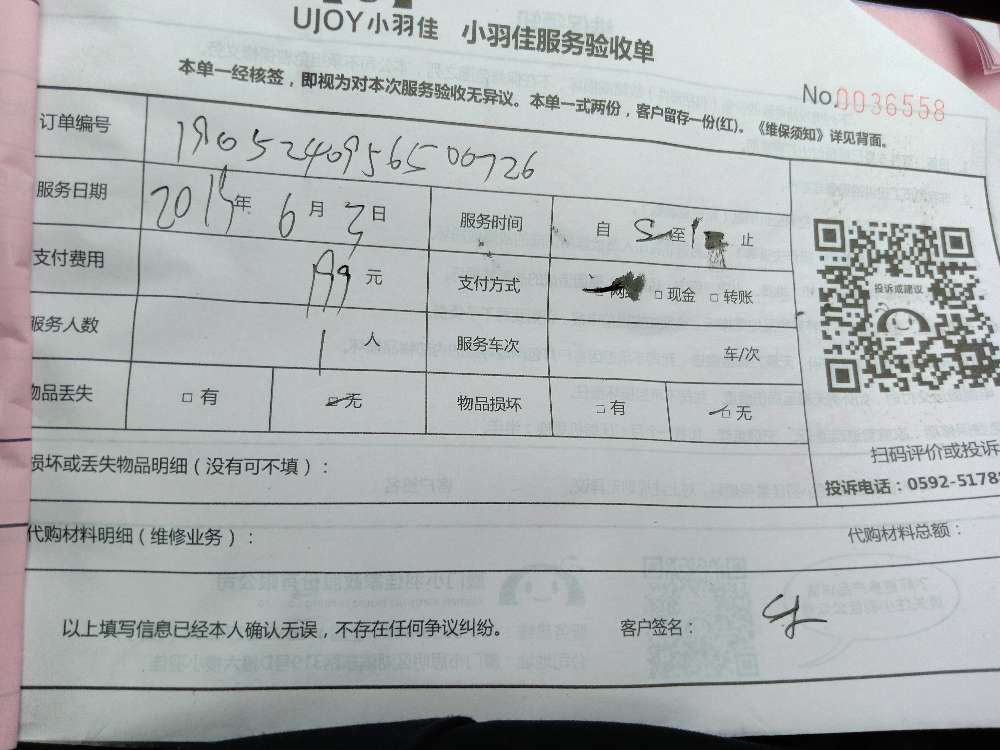 UJOY小羽佳 小羽佳服务验收单
本单一经核签，即视为对本次服务验收无异议。本单一式两份，客户留存一份(红)。《维保须知》详见背面。
No.0036558
订单编号 190524095650726
服务日期 年 6月 日 服务时间 自 至 止
支付费用 199元 支付方式 □现金 □转账
服务人数 1人 服务车次 车/次
物品丢失 □有 □无 物品损坏 □有 □无
投诉或建议
扫码评价或投诉
投诉电话：0592-5178
损坏或丢失物品明细（没有可不填）：
代购材料明细（维修业务）： 代购材料总额：
以上填写信息已经本人确认无误，不存在任何争议纠纷。 客户签名：